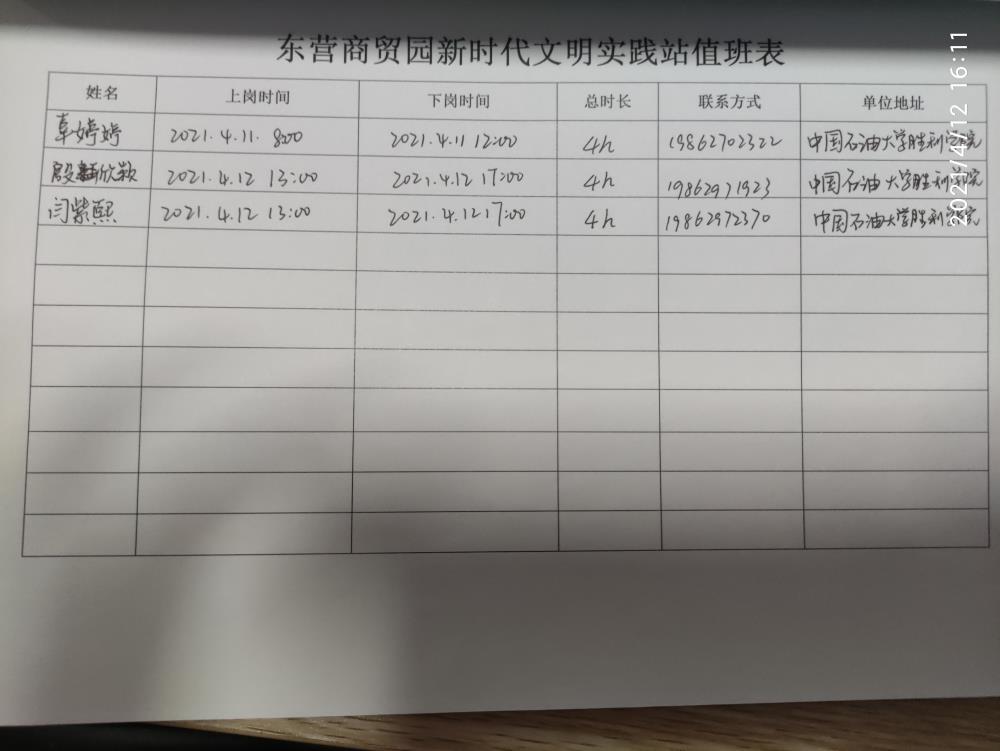 东营商贸园新时代文明实践站值班表
姓名 上岗时间 下岗时间 总时长 联系方式 单位地址
婷婷 2021.4.11. 8:00 2021.4.11 12:00 4h 19862702322 中国石油大学胜利学院
殷 欣颖 2021.4.12 13:00 2021.4.12 17:00 4h 19862971923 中国石油大学胜利学院
闫紫熙 2021.4.12 13:00 2021.4.12 17:00 4h 19862972370 中国石油大学胜利学院
2021/4/12 16:11